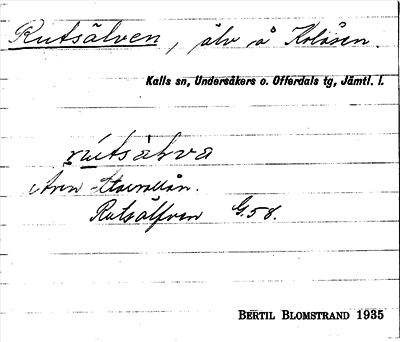 Rutsälven, älv å Kolåsen.
Kalls sn, Undersåkers o. Offerdals tg, Jämtl. l.
rutsàḷva
Även
Rutsälfven G.58.
BERTIL BLOMSTRAND 1935